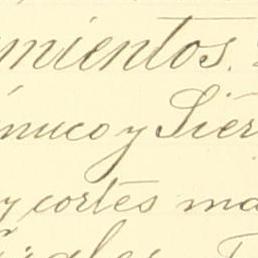 mientos.
nuco y Sier
y cortés ma